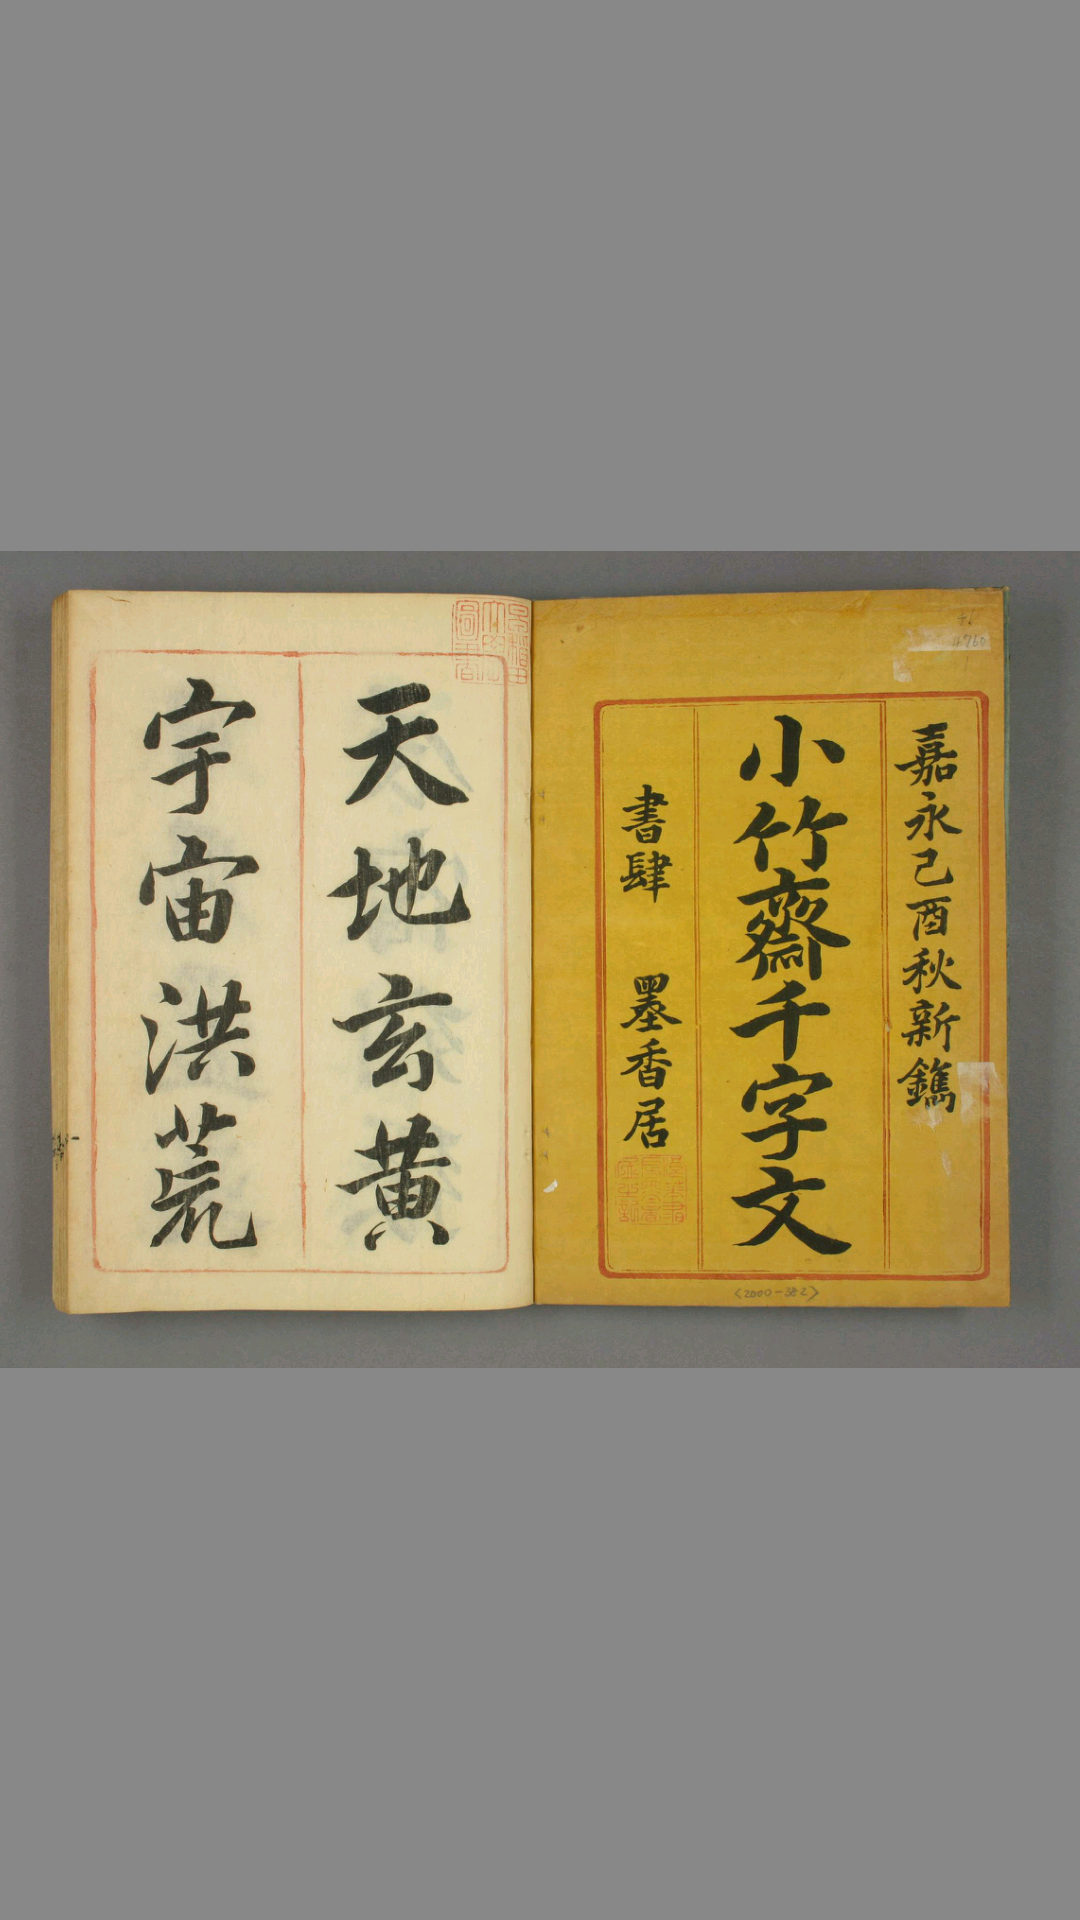 嘉永己酉秋新鐫
小竹齋千字文
書肆 墨香居
天地玄黄
宇宙洪荒
<2000-382>